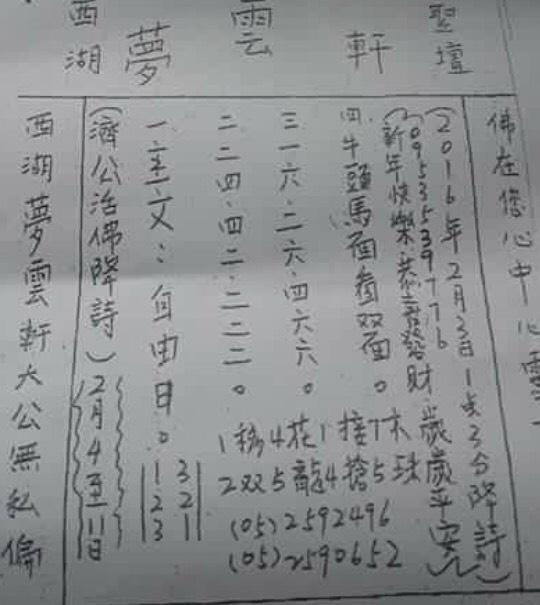 聖壇
軒
雲
夢
西湖
佛在您心中心靈
(2016年2月3日1点3分降詩)
(0953539776
新年快樂恭喜發財歲歲平安)
四.牛頭馬面看双面。
三一六、二六、四六六。
二二四、四二、二二二。
一主文:自由日。
1移4花1接7木
2双5龍4搶5珠
(05)2592496
(05)2590652
1 3
2 2
3 1
(濟公活佛降詩)
2月4至11日
西湖夢雲軒大公無私偏